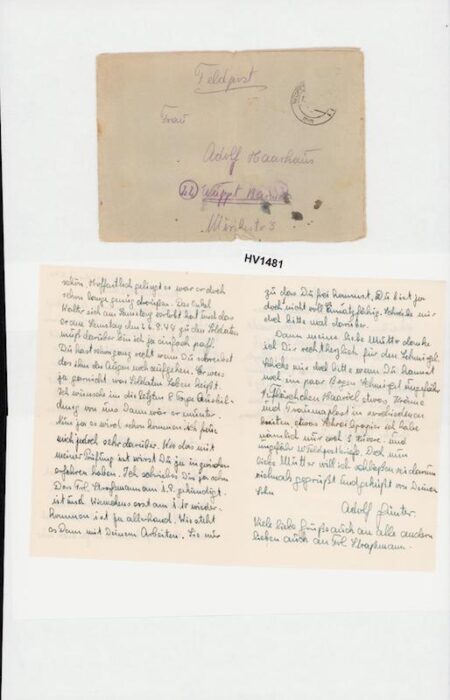 Feldpost
Frau
Adolf Haarhaus
(22) Wuppt. Barmen
HV1481
schön. Hoffentlich gelingt es war er doch
schon lange genug draußen. Das Onkel
Walter sich am Samstag verlobt hat und das
er am Samstag den 2.6.9.44 zu den Soldaten
muß darüber bin ich ja einfach paff.
Du hast schon ganz recht wenn Du schreibst
das ihm die Augen noch aufgehen. Er weis
ja garnicht was Soldaten Leben heißt.
Ich wünsche in die letzten 8 Tage Ausbil-
dung von uns dann wär er munter.
Nun ja es wird schon kommen ich
mich jedoch sehr darüber. Wie das mit
meiner Prüfung ist wirst Du ja inzwischen
erfahren haben. Ich schrieb es Dir ja schon
Das Frl. Straßmann am 1.9. gekündigt
ist und Niemand erst am 1. wieder
kommen ist ja allerhand. Wie steht
es dann mit Deinem Arbeiten. Sie
zu das Du frei kommst, Du bist ja
doch nicht voll einsatzfähig. Schreibe mir
doch bitte mal darüber.
Dann meine liebe Mutter danke
ich Dir recht herzlich für den
Schicke mir doch bitte wenn Du kannst
noch ein paar Bogen ungefähr
etwas
und
etwas Schreibpapier ich habe
nämlich nur noch 3 und
ungefähr Feldpostbriefe. Doch nun
liebe Mutter will ich schließen sei darum
vielmals gegrüßt und geküßt von Deinem
Sohn
Adolf Günter.
Viele liebe Grüße auch an alle andern
lieben auch an Frl. Straßmann.